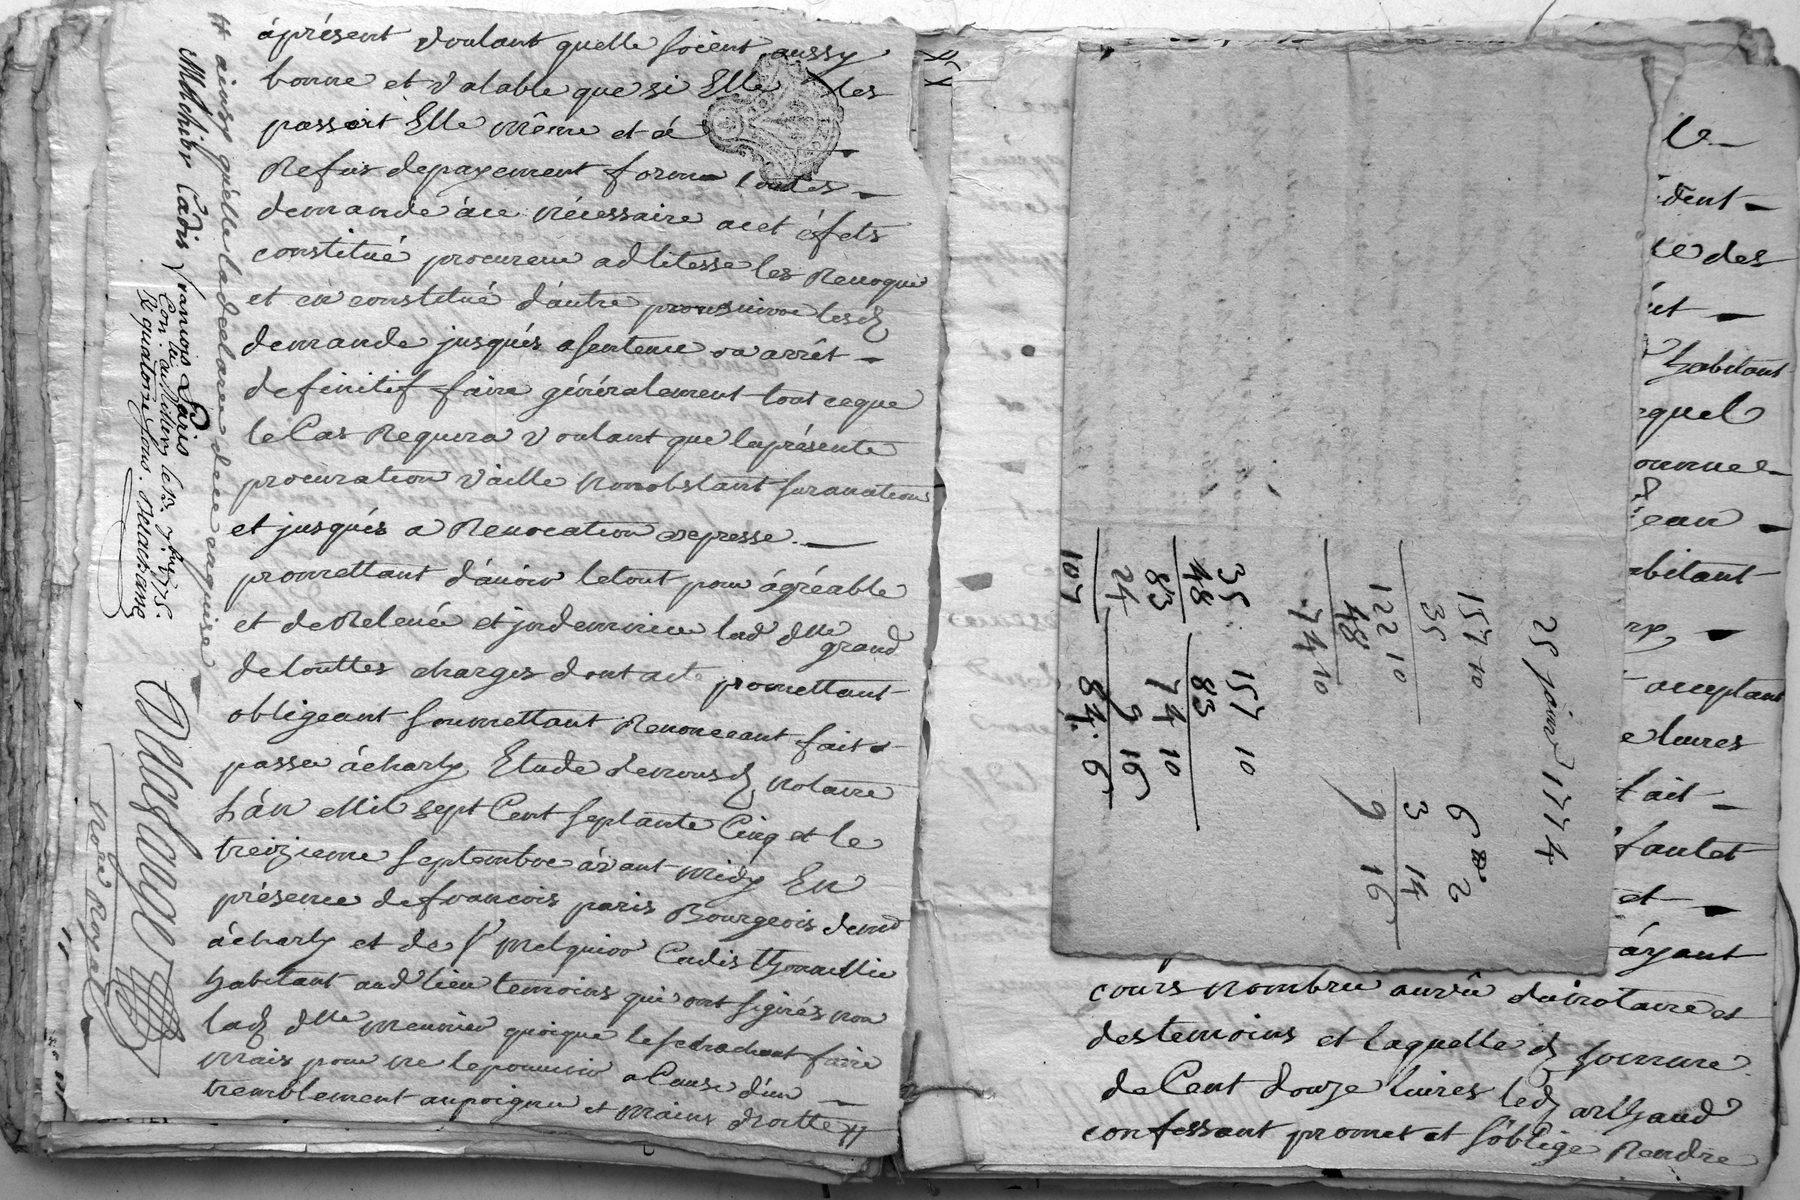 àprésent voulant quelle soient aussy
bonne et valable que si Elle les
passoit Elle même et à
Refus depayement forme toutes
demande àce nécessaire acet éfets
constitué procureur adlitesse les Revoquè
et en constitué d'autre poursuivre lesd
demande jusqués asentence ou arrêt
definitif faire généralement tout ceque
le Cas Requera voulant que laprésente
procuration vaille nonobstant suranations
et jusqués a Revocation expresse
promettant d'avoir letout pour àgréable
et deRelevée et jndemnisee lad dlle grand
detouttes charges dont acte promettant
obligeant soumettant Renonceant fait
passée àcharly Etude denousd notaire
Lân Mil sept Cent septante Cinq et le
treizieme septembre àvant midy En
présence defrancois paris Bourgeois dem
àcharly et de sr Melquior Cadis
habitant aud lieu temoins qui ont signés non
lad dlle meunier quoique le sachant faire
mais pour ne lepouvoir a Cause d'un
tremblement aupoignu et mains droitte #
# ainsy qu'elle ladeclaree dece enquise
Melchior Cadis françois Paris
Con. au le 13. 7bre 1775.
R quatorze sous. delachasse
Delafonge
nore Royal
25 janv 1774
157 10
35
122 10
48
74 10
6 2
3 14
9 16
35
48
83
24
107
157 10
83
74 10
9 16
84. 6
le
dent
ce des
habitant
equel
onnue
jean
abitant
acceptant
e livres
fait
faulet
et
àyant
cours nombrée auvû dunotaire et
destemoins et laquelle d somme
deCent douze livres led arthaud
confessant promet et s'oblige Rendre